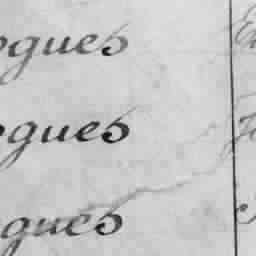 ogues
ogues
gues